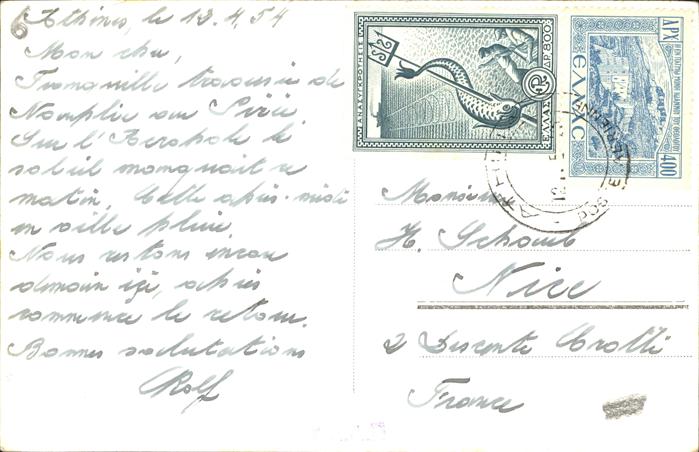 6
Athènes, le 13.4.54
Mon cher,
Tranquille traversée de
Nauplie au Pirée.
Sur l'Acropole le
soleil manquait ce
matin. Cette après-midi
en ville pluie.
Nous restons encore
demain içi, après
commence le retour.
Bonnes salutations
Rolf
ΑΝΑΣΥΓΚΡΟΤΗΣΙΣ
ΣΑ
ΔΡ. 800
ΕΛΛΑΣ
ΔΡΧ
ΕΛΛΑΣ
400
POSTE AERIENNE
Monsieur
H. Schaub
Nice
2 Descente Crotti
France